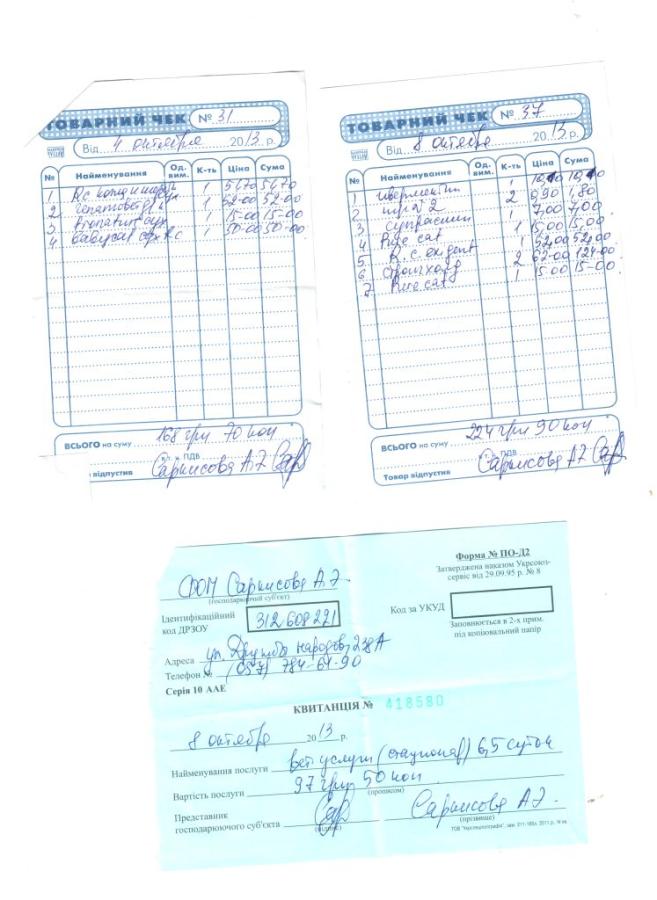 ТОВАРНИЙ ЧЕК № 31
Від 4 октября 2013 р.
№ Найменування Од. вим. К-ть Ціна Сума
1 1 54-70 54-70
2 1 52-00 52-00
3 1 15-00 15-00
4 babycat 1 50-00 50-00
ВСЬОГО на суму 168 грн 70 коп
т. ч. ПДВ
Товар відпустив Саркисова А.Э
ТОВАРНИЙ ЧЕК № 37
Від 8 октября 2013 р.
№ Найменування Од. вим. К-ть Ціна Сума
1 ивермектин 1 10,10 10,10
2 2 0,90 1,80
3 супрастин 1 7,00 7,00
4 Pure cat 1 15,00 15,00
5 R.c. exigent 1 52,00 52,00
6 стронгхолд 2 62-00 124-00
7 Pure cat 1 15,00 15-00
ВСЬОГО на суму 224 грн 90 коп
т. ч. ПДВ
Товар відпустив Саркисова А Э
Форма № ПО-Д2
Затверджена наказом Укрсоюз-
сервіс від 29.09.95 р. № 8
ФОП Саркисова А.Э.
(господарюючий суб'єкт)
Ідентифікаційний
код ДРЗОУ 312608221
Код за УКУД
Заповнюється в 2-х прим.
під копіювальний папір
Адреса ул. Дружбы народов, 238А
Телефон № (057) 784-64-90
Серія 10 ААЕ
КВИТАНЦІЯ № 418580
8 октября 2013 р.
Найменування послуги вет. услуги (стационар) 6,5 суток
Вартість послуги 97 грн 50 коп
(прописом)
Представник
господарюючого суб'єкта Саркисова А Э.
(підпис) (прізвище)